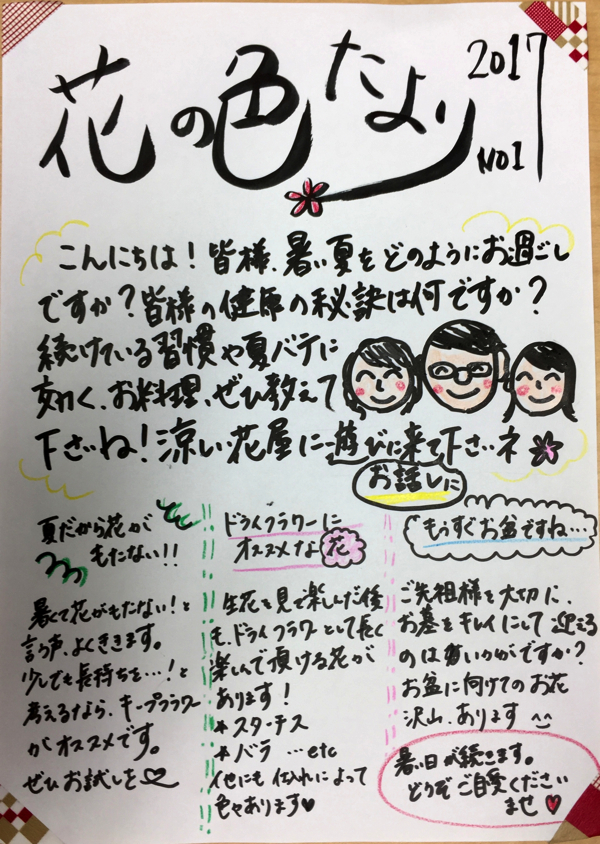 花の色たより
2017
NO1
こんにちは！皆様、暑い夏をどのようにお過ごし
ですか？皆様の健康の秘訣は何ですか？
続けている習慣や夏バテに
効く、お料理、ぜひ教えて
下さいね！涼しい花屋に遊びに来て下さいネ
お話しに
夏だから花が
もたない！！
暑くて花がもたない！と
言う声、よくききます。
少しでも長持ちを…！と
考えるなら、キープフラワー
がオススメです。
ぜひお試しを♡
ドライフラワーに
オススメな花
生花を見て楽しんだ後
も、ドライフラワーとして長く
楽しんで頂ける花が
あります！
*スターチス
*バラ …etc
他にも仕入れによって
色々あります♥
もうすぐお盆ですね…
ご先祖様を大切に、
お墓をキレイにして迎える
のはいかがですか？
お盆に向けてのお花
沢山、あります^^
暑い日が続きます。
どうぞご自愛ください
ませ♥